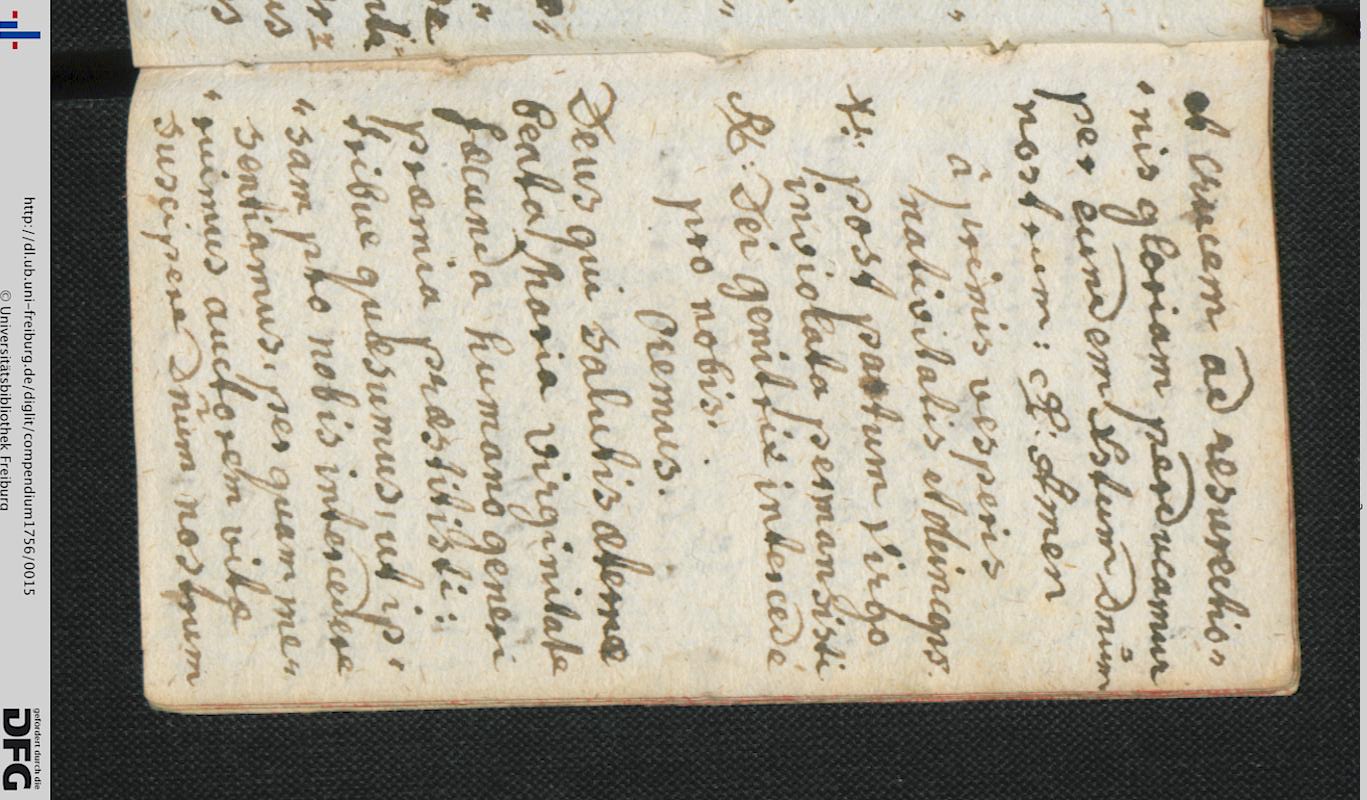 et crucem ad resurectio„
„nis gloriam perducamur
per eundem Xstum Dnum
nostrum: R. Amen
â primis vesperis
nativitatis et deinceps.
V: post partum virgo
inviolata permansisti
R: Dei genitrix intercede
pro nobis.
Oremus.
Deus qui salutis æternæ
beatæ Maria virginitate
fæcunda humano generi
præmia præstitisti:
tribue quæsumus, ut ip„
„sam pro nobis intercedere
sentiamus, per quam me„
„ruimus auctorem vitæ
suscipere Dnūm nostrum
http://dl.ub.uni-freiburg.de/diglit/compendium1756/0015
© Universitätsbibliothek Freiburg
gefördert durch die
DFG